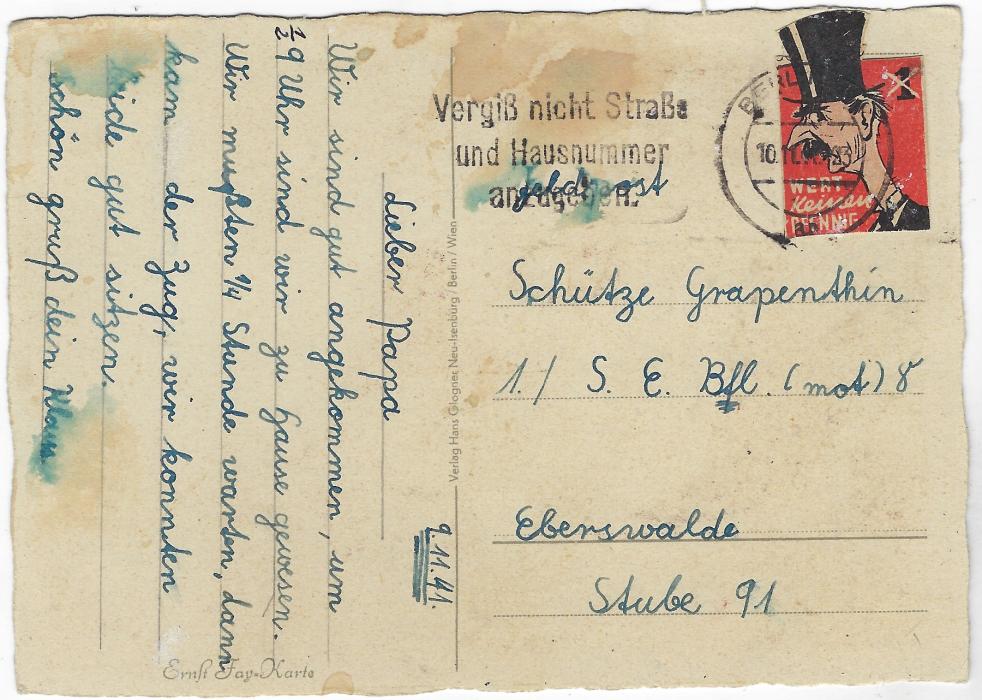 9.11.41.
Lieber Papa
Wir sind gut angekommen, um
½9 Uhr sind wir zu hause gewesen.
Wir mußten ¼ Stunde warten, dann
kam der Zug, wir konnten
beide gut sitzen.
schön gruß dein Klaus
Ernst Fay-Karte
Verlag Hans Glogner, Neu-Isenburg / Berlin / Wien
Vergiß nicht Straße
und Hausnummer
anzugeben.
Feldpost
BERLIN
10.11.
1
WERT
Keinen
PFENNIG
Schütze Grapenthin
1./ S. E. Bfl. (mot) 8
Eberswalde
Stube 91